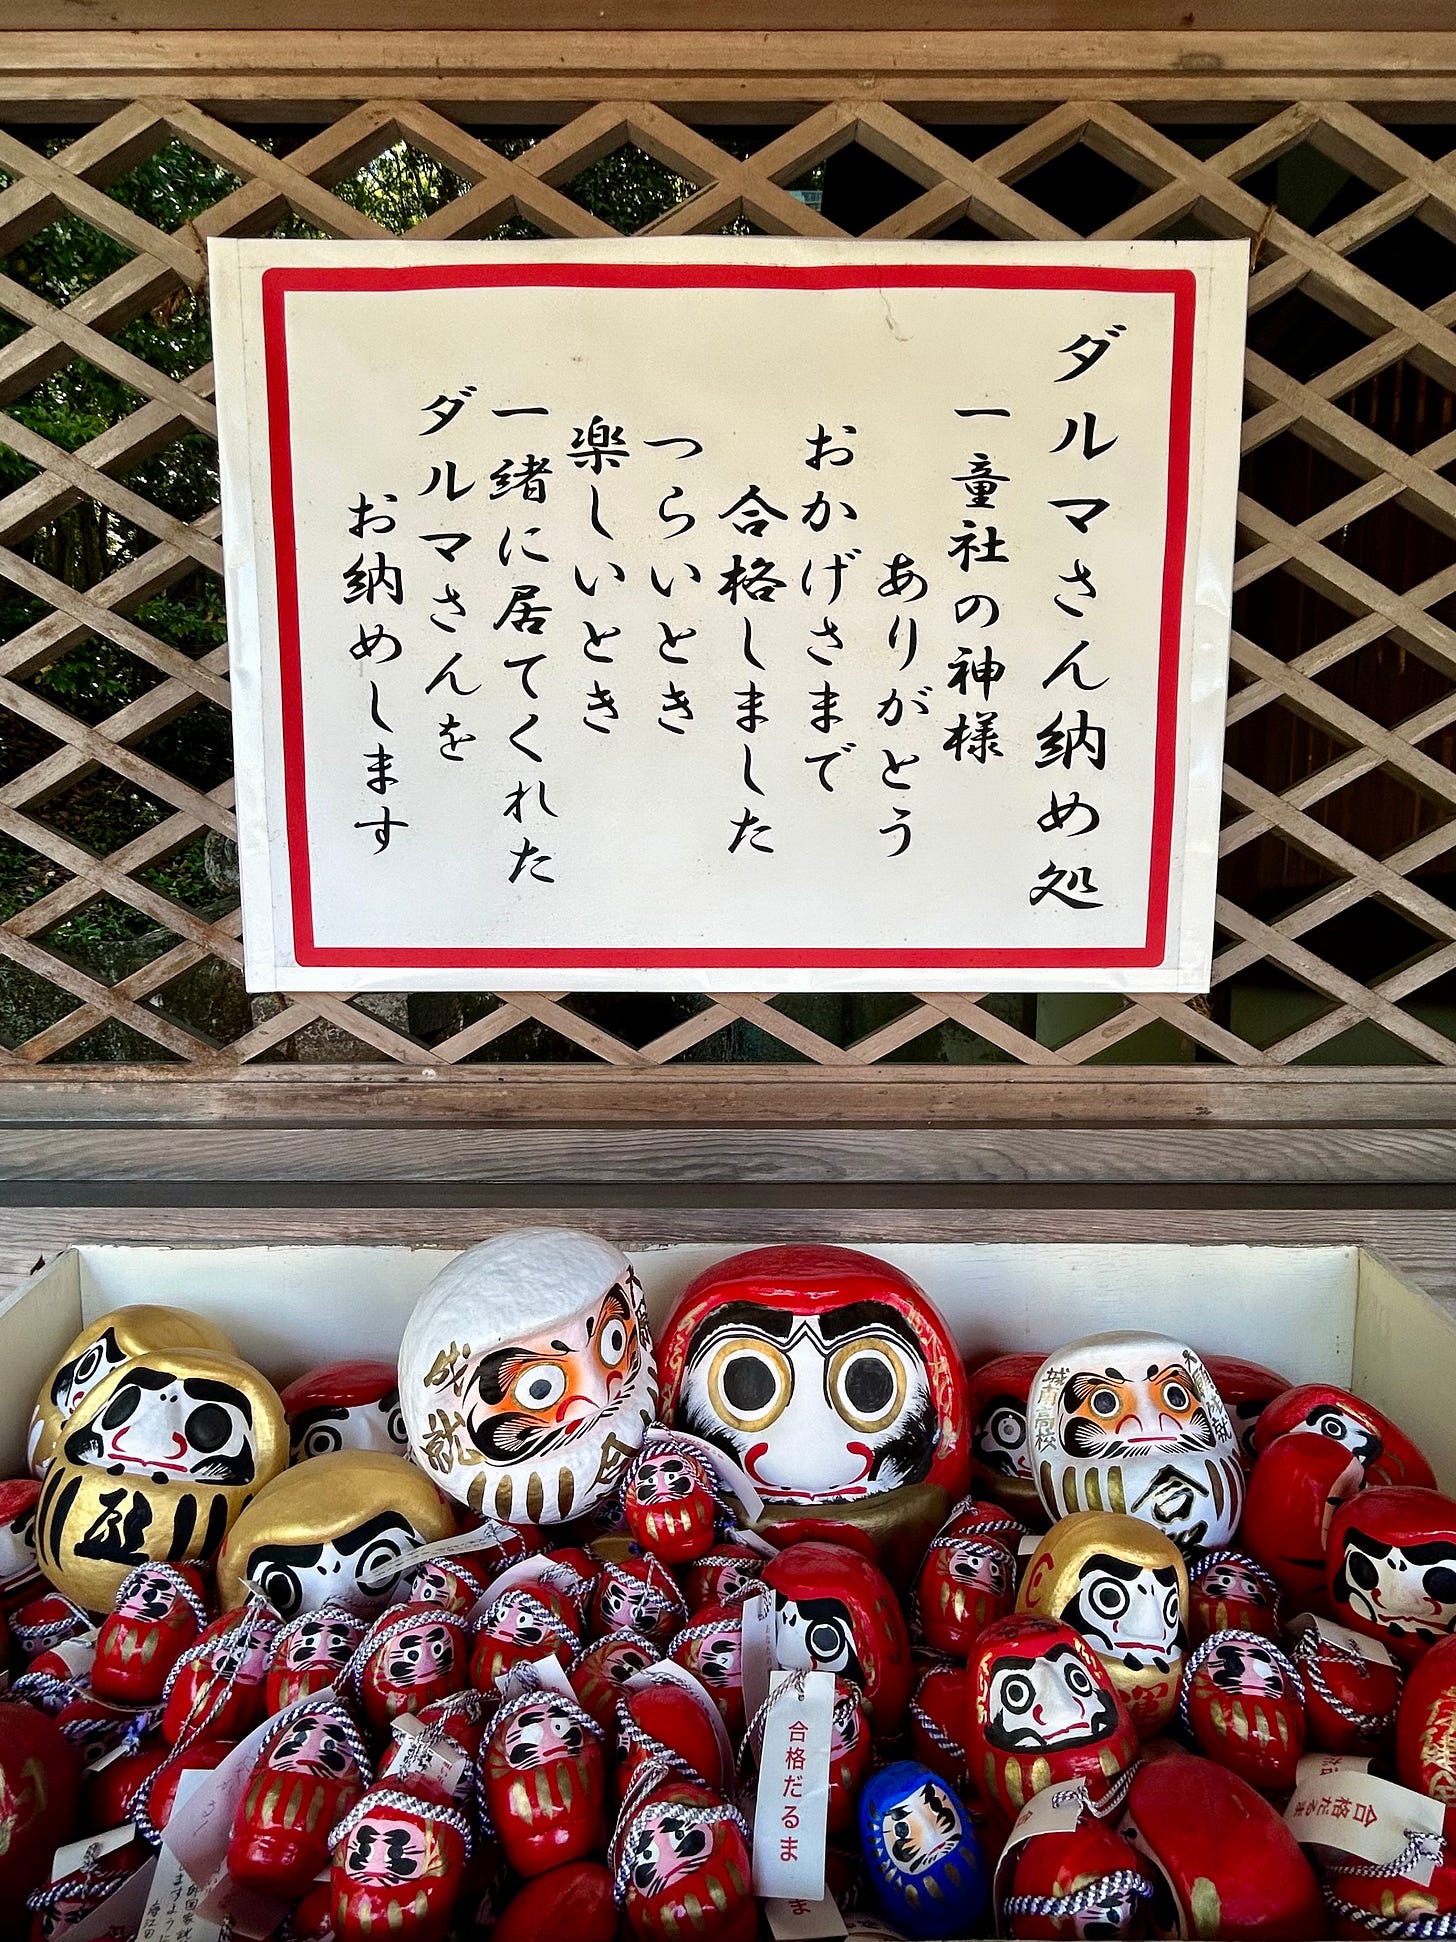 ダルマさん納め処
一童社の神様
ありがとう
おかげさまで
合格しました
つらいとき
楽しいとき
一緒に居てくれた
ダルマさんを
お納めします
成就
合
大願成就
城南高校
合
願
運
合格だるま
合格だるま
ま